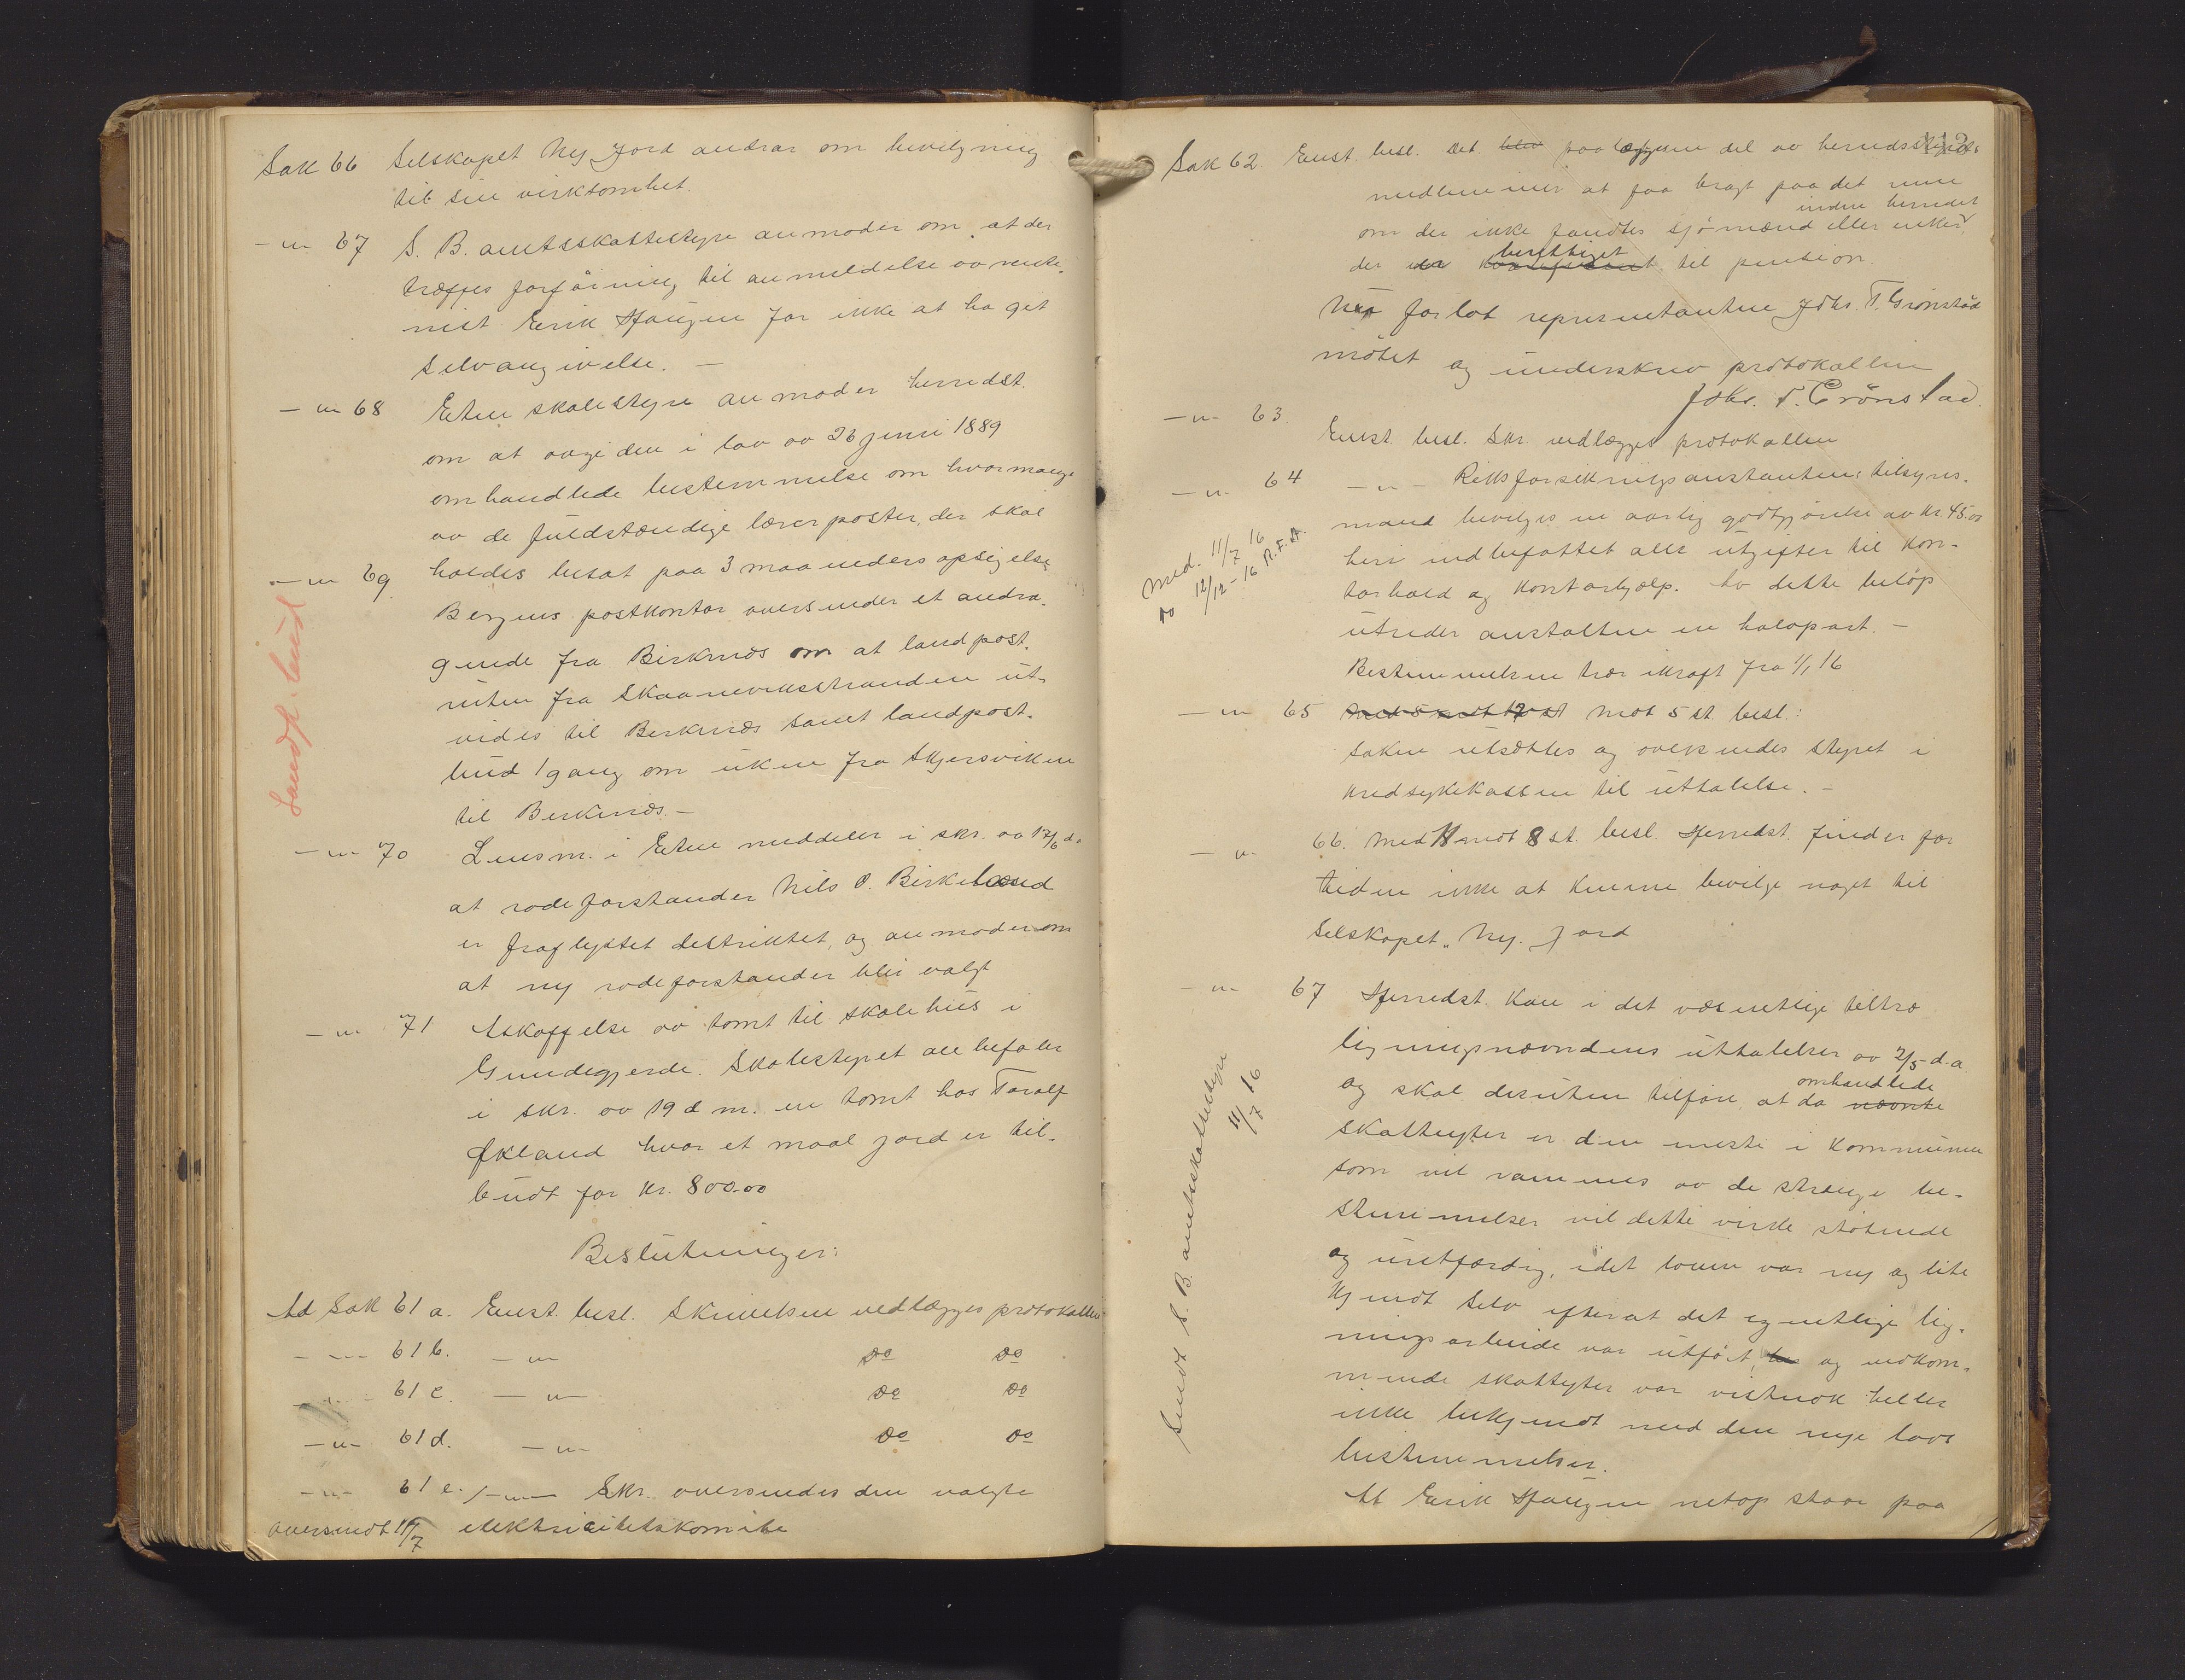 Sak 66 Selskapet Ny Jord andrar om bevilgning
til sin virksomhet.
-"- 67 S. B. amtsskattestyre anmoder om at der
træffes forføining til anmeldelse av rente-
nist Erik Haugen for ikke at ha get
selvangivelse. -
-"- 68 Etne skolestyre anmoder herredst.
om at avgi den i lov av 26 juni 1889
omhandlede bestemmelse om hvormange
av de fuldstændige lærerposter, der skal
holdes besat paa 3 maaneders opsigelse
-"- 69 Bergens postkontor oversender et andra-
gende fra Birknæs om at landpost-
ruten fra Skaaneviksstranden ut-
vides til Birknæs samt landpost-
bud 1 gang om uken fra Skjersviken
til Berknæs. -
Landp. bud
-"- 70 Lensm. i Etne meddeler i skr. av 17/6 d.a
at rodeforstander Nils O. Birkeland
er fraflyttet destriktet, og anmoder om
at ny rodeforstander blir valgt
-"- 71 Askaffelse av tomt til skolehus i
Gundegjerde. Skolestyret anbefaler
i skr. av 19 d m. en tomt hos Toralf
Økland hvor et maal jord er til-
budt for Kr. 800.00
Beslutninger:
Ad Sak 61 a. Enst. besl. Skrivelsen vedlægges protokollen
-"- 61 b. -"- do do
-"- 61 c. -"- do do
-"- 61 d. -"- do do
-"- 61 e. -"- Skr. oversendes den valgte
oversendt 11/7 elektricitetskomite
112
Sak 62 Enst. besl. Det blev paalægges en del av herredsstyrets
medlemmer at faa bragt paa det rene
inden herredet
om der ikke fandtes sjömænd eller enker
berettiget
der er til pension.
Nu forlot representanten Johs. T. Grönstad
mötet og underskrev protokollen
Johs. T. Grönstad.
-"- 63 Enst. besl. Skr. vedlægges protokollen
-"- 64 -"- Riksforsikringsanstaltens tilsyns-
mand bevilges en aarlig godtgjörelse av Kr. 45.00
heri indbefattet alle utgifter til kon-
torhold og kontorhjælp. Av dette belöp
utreder anstalten en halvpart. -
Bestemmelsen trær ikraft fra 1/1 16
Med. 11/7 16
do 12/12 - 16 R.F.A.
-"- 65 Mot 5 st. besl.:
Saken utsættes og oversendes styret i
kredsykekassen til uttalelse. -
-"- 66. Med 11 mot 8 st. besl. Herredst. finder for
tiden ikke at kunne bevilge noget til
Selskapet „Ny Jord
-"- 67 Herredst. kan i det væsentlige tiltræ
ligningsnævndens uttalelser av 2/5 d.a
omhandlede
og skal desuten tilföie, at da nævnte
skatteyter er den eneste i kommunen
som vil rammes av de strænge be-
stemmelser vil dette virke stötende
og uretfærdig, idet loven var ny og lite
kjendt selv efterat det egentlige lig-
ningsarbeide var utfört, og vedkom-
mende skatteyter var vistnok heller
ikke bekjendt med den nye lovs
bestemmelser.
At Erik Haugen netop staar paa
Sendt S. B. amtsskattestyre
11/7 16